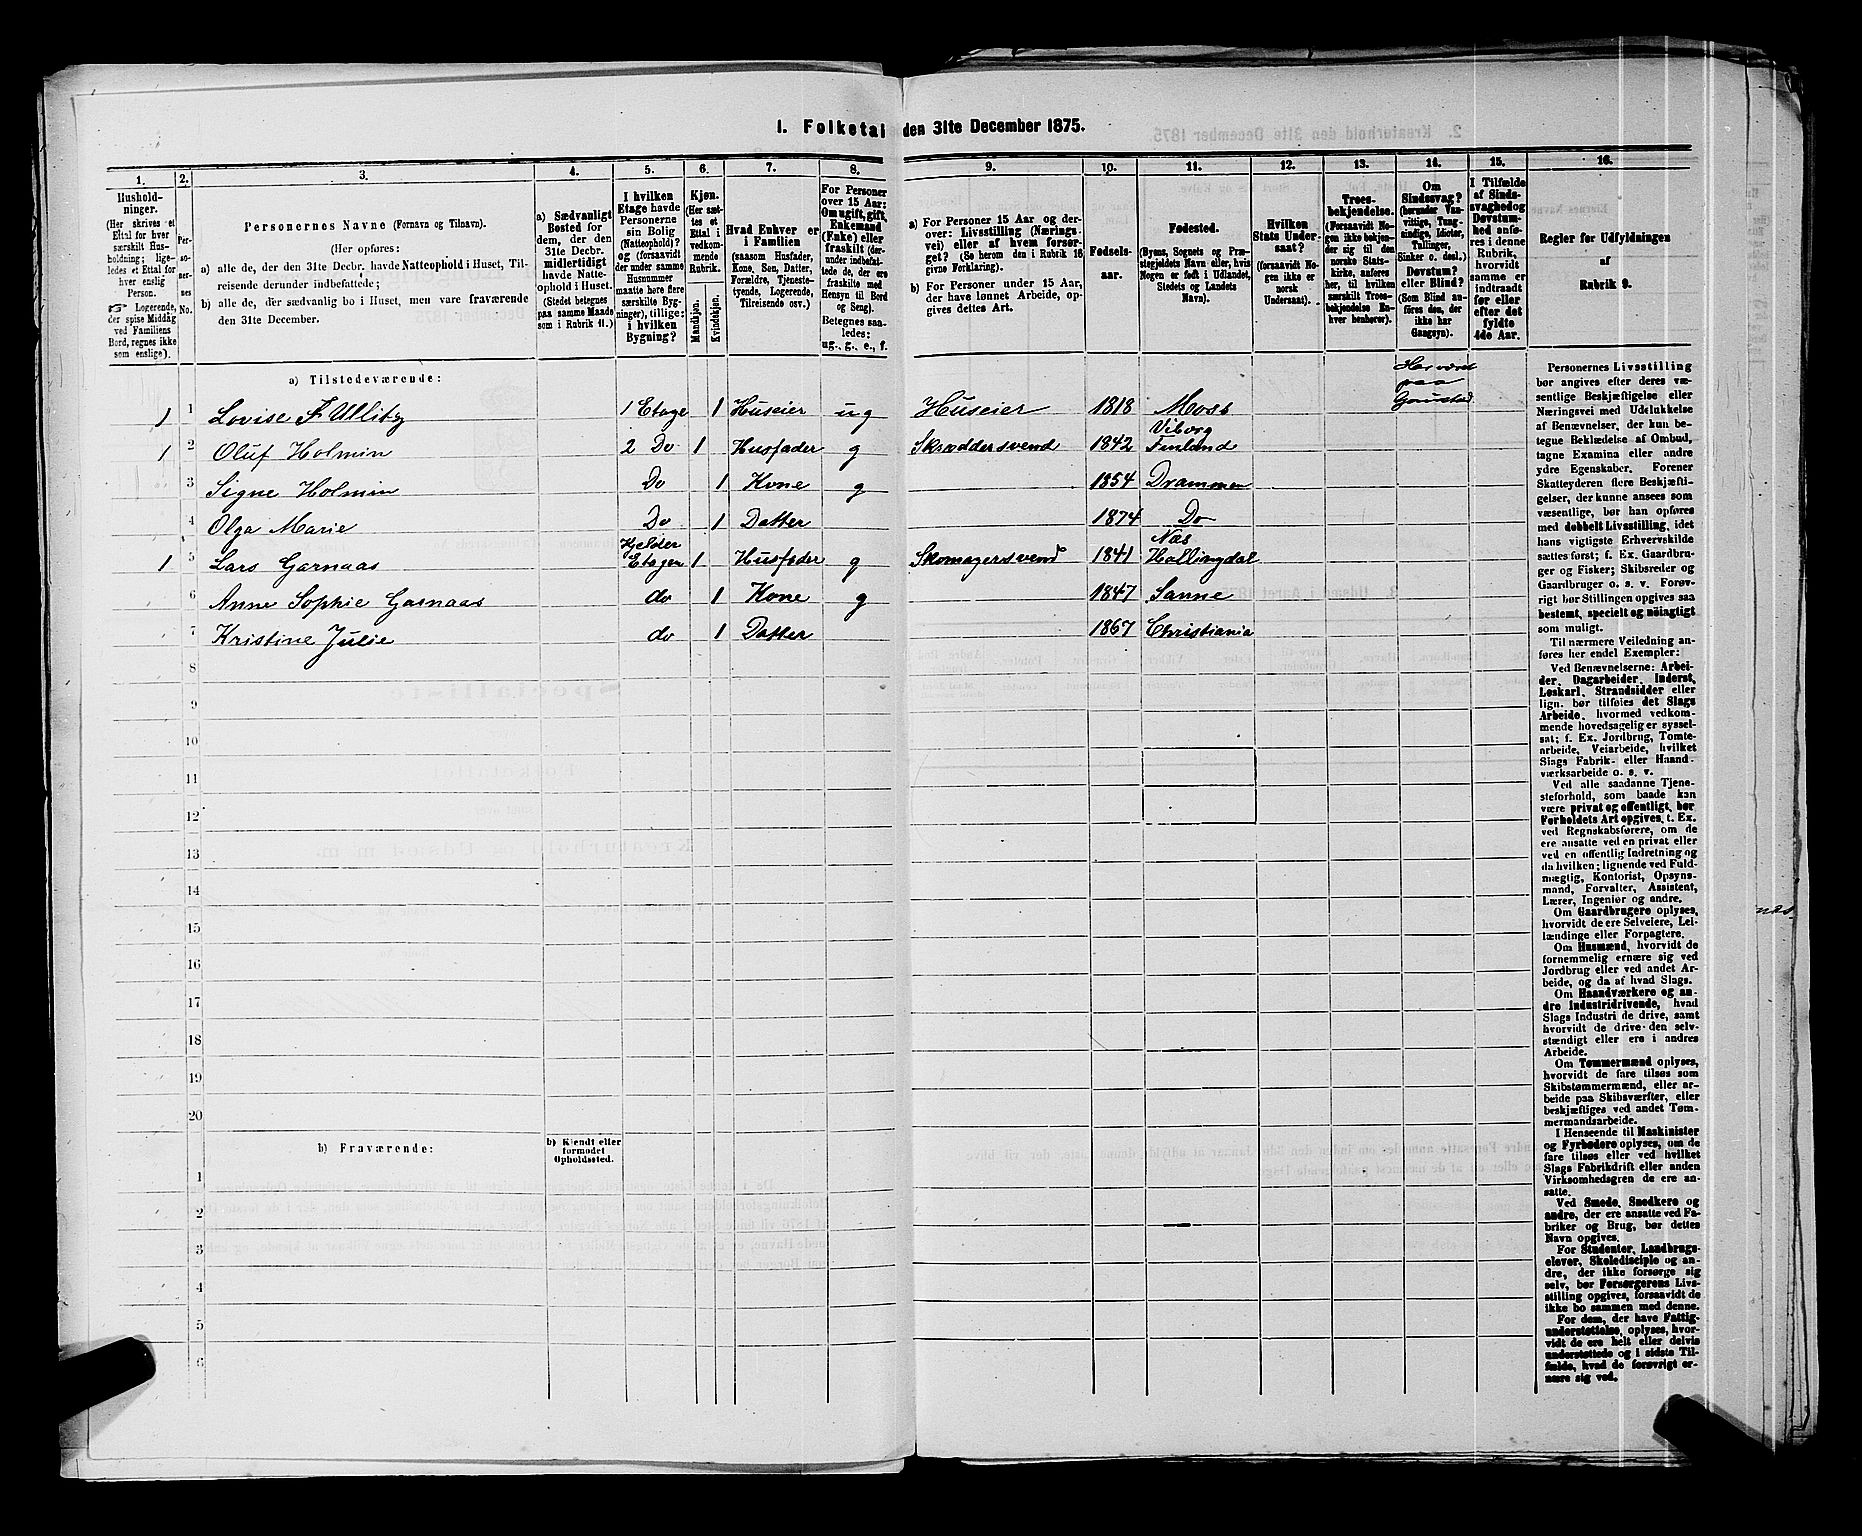 1. Folketal den 31te December 1875.
1.
Husholdninger.
(Her skrives et
Ettal for hver
særskilt Husholdning;
ligeledes et Ettal for
hver enslig
Person.
Logerende,
der spise Middag
ved Familiens
Bord, regnes ikke
som enslige).
2.
Personernes
No.
3.
Personernes Navne (Fornavn og Tilnavn).
(Her opføres:
a) alle de, der den 31te Decbr. havde Natteophold i Huset, Tilreisende derunder indbefattede;
b) alle de, der sædvanlig bo i Huset, men vare fraværende
den 31te December.
4.
a) Sædvanligt
Bosted for
dem, der den
31te Decbr.
midlertidigt
havde Natteophold i Huset.
(Stedet betegnes
paa samme Maade
som i Rubrik 11.)
5.
I hvilken
Etage havde
Personerne
sin Bolig
(Natteophold)?
og (forsaavidt
der under samme
Husnummer
maatte høre flere
særskilte Bygninger), tillige:
i hvilken
Bygning?
6.
Kjøn.
(Her sættes et
Ettal i
vedkommende
Rubrik.
Mandkjøn.
Kvindekjøn.
7.
Hvad Enhver er
i Familien
(saasom Husfader,
Kone, Søn, Datter,
Forældre, Tjenestetyende, Logerende,
Tilreisende osv.)
8.
For Personer
over 15 Aar:
Om ugift, gift,
Enkemand
(Enke) eller
fraskilt (derunder indbefattede de, der ere
fraskilte med
Hensyn til Bord
og Seng).
Betegnes saaledes:
ug., g., e., f.
9.
a) For Personer 15 Aar og derover: Livsstilling (Næringsvei) eller af hvem forsørget? (Se herom den i Rubrik 16
givne Forklaring).
b) For Personer under 15 Aar,
der have lønnet Arbeide, opgives dettes Art.
10.
Fødselsaar.
11.
Fødested.
(Byens, Sognets og Præstegjeldets Navn eller, hvis
Nogen er født i Udlandet,
Stedets og Landets
Navn).
12.
Hvilken
Stats Undersaat?
(forsaavidt Nogen ikke er
norsk
Undersaat).
13.
Troesbekjendelse.
(Forsaavidt Nogen ikke bekjender sig til den
norske Statskirke, anføres
her, til hvilken
særskilt Troesbekjendelse Enhver henhører).
14.
Om
Sindssvag?
(herunder Vanvittige, Tungsindige, Idioter,
Tullinger,
Sinker o. desl.)
Døvstum?
eller Blind?
(Som Blind anføres den, der
ikke har
Gangsyn).
15.
I Tilfælde
af Sindssvaghed og
Døvstumhed anføres i denne
Rubrik,
hvorvidt
samme er
indtraadt
før eller
efter det
fyldte
4de Aar.
16.
Regler for Udfyldningen
af
Rubrik 9.
a) Tilstedeværende:
1 1 Lovise F Ulliby 1 Etage 1 Huseier ug Huseier 1818 Moss Har været paa Gaustad
1 2 Oluf Holmin 2 Do 1 Husfader g Skræddersvend 1842 Viborg Finland
3 Signe Holmin Do 1 Kone g 1854 Drammen
4 Olga Marie Do 1 Datter 1874 Do
1 5 Lars Garnaas Kjelder Etagen 1 Husfader g Skomagersvend 1841 Næs Hallingdal
6 Anne Sophie Garnaas do 1 Kone g 1847 Sanne
7 Kristine Julie do 1 Datter 1867 Christiania
8
9
10
11
12
13
14
15
16
17
18
19
20
b) Fraværende:
b) Kjendt eller
formodet
Opholdssted.
1
2
3
4
5
6
Personernes Livsstilling
bør angives efter deres væsentlige Beskjæftigelse eller
Næringsvei med Udelukkelse
af Benævnelser, der kun betegne Beklædelse af Ombud,
tagne Examina eller andre
ydre Egenskaber. Forener
Skatteyderen flere Beskjæftigelser, der kunne ansees som
væsentlige, bør han opføres
med dobbelt Livsstilling, idet
hans vigtigste Erhvervskilde
sættes først; f. Ex. Gaardbruger og Fisker; Skibsreder og
Gaardbruger o. s. v. Forøvrigt bør Stillingen opgives saa
bestemt, specielt og nøiagtigt
som muligt.
Til nærmere Veiledning anføres her endel Exempler:
Ved Benævnelserne: Arbeider, Dagarbeider, Inderst,
Løskarl, Strandsidder eller
lign. bør tilføies det Slags
Arbeide, hvormed vedkommende hovedsagelig er sysselsat; f. Ex. Jordbrug, Tomtearbeide, Veiarbeide, hvilket
Slags Fabrik- eller Haandværksarbeide o. s. v.
Ved alle saadanne Tjenesteforhold, som baade kan
være privat og offentligt, bør
Forholdets Art opgives, t. Ex.
ved Regnskabsførere, om de
ere ansatte ved en privat eller
ved en offentlig Indretning og
da hvilken; lignende ved Fuldmægtig, Kontorist, Opsynsmand, Forvalter, Assistent,
Lærer, Ingeniør og andre.
Om Gaardbrugere oplyses,
hvorvidt de ere Selveiere, Leilændinge eller Forpagtere.
Om Husmænd, hvorvidt de
fornemmelig ernære sig ved
Jordbrug eller ved andet Arbeide, og da af hvad Slags.
Om Haandværkere og andre Industridrivende, hvad
Slags Industri de drive, samt
hvorvidt de drive den selvstændigt eller ere i andres
Arbeide.
Om Tømmermænd oplyses,
hvorvidt de fare tilsøs som
Skibstømmermænd, eller arbeide paa Skibsværfter, eller
beskjæftiges ved andet Tømmermandsarbeide.
I Henseende til Maskinister
og Fyrbødere oplyses, om de
fare tilsøs eller ved hvilket
Slags Fabrikdrift eller anden
Virksomhedsgren de ere ansatte.
Ved Smede, Snedkere og
andre, der ere ansatte ved Fabriker og Brug, bør dettes
Navn opgives.
For Studenter, Landbrugselever, Skoledisciple og andre, der ikke forsørge sig
selv, bør Forsørgerens Livsstilling opgives, forsaavidt de
ikke bo sammen med denne.
For dem, der have Fattigunderstøttelse, oplyses, hvorvidt de ere helt eller delvis
understøttede og i sidste Tilfælde, hvad de forøvrigt ernære sig ved.